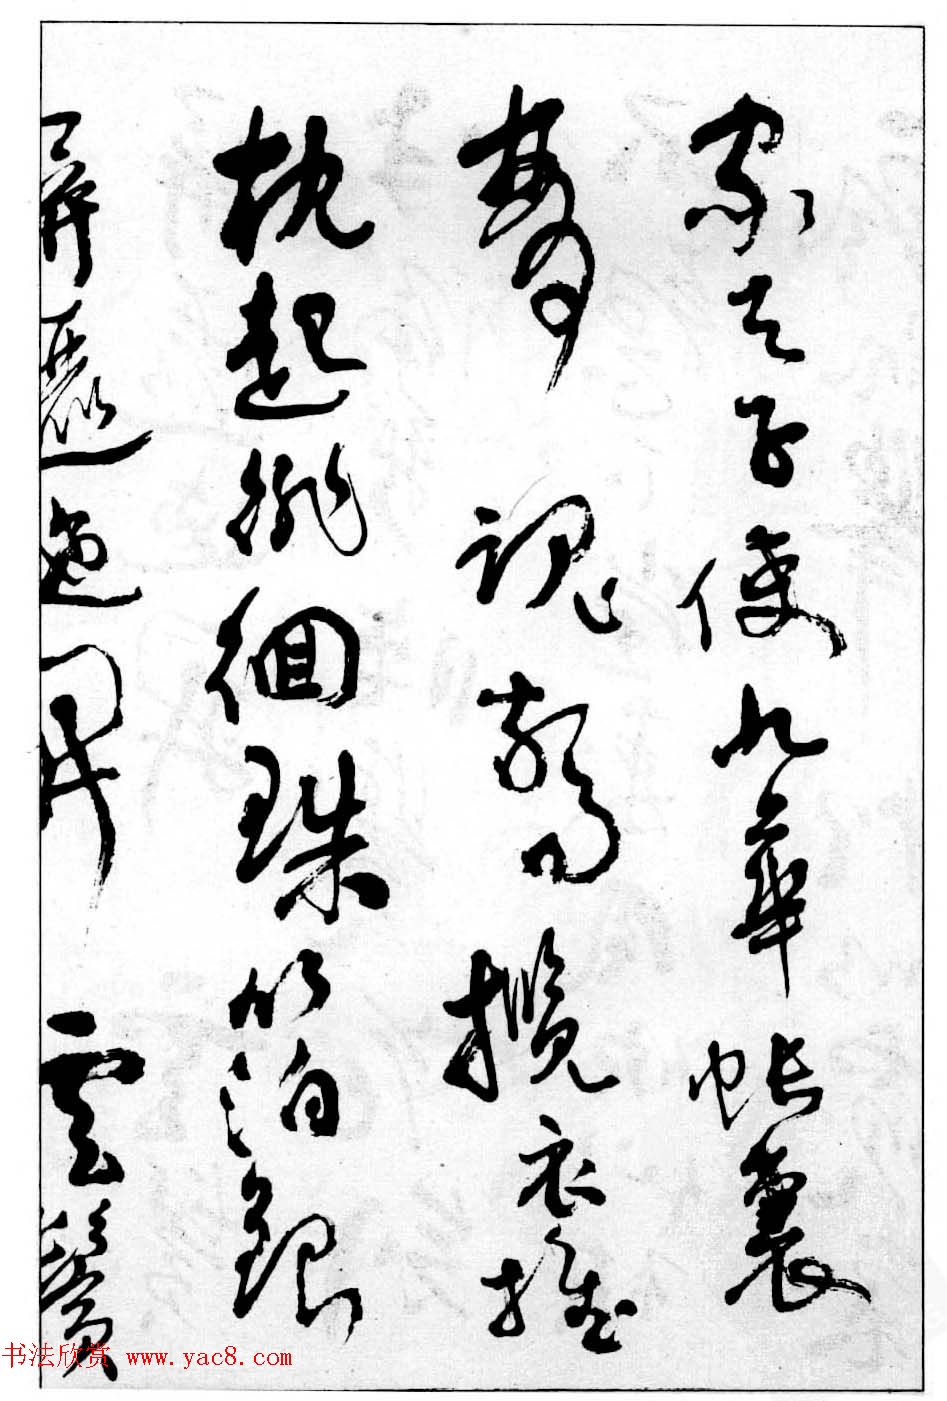 家天子使九華帳裏
夢魂驚攬衣推
枕起徘徊珠箔銀
屏邐迤開雲鬢
书法欣赏 www.yac8.com